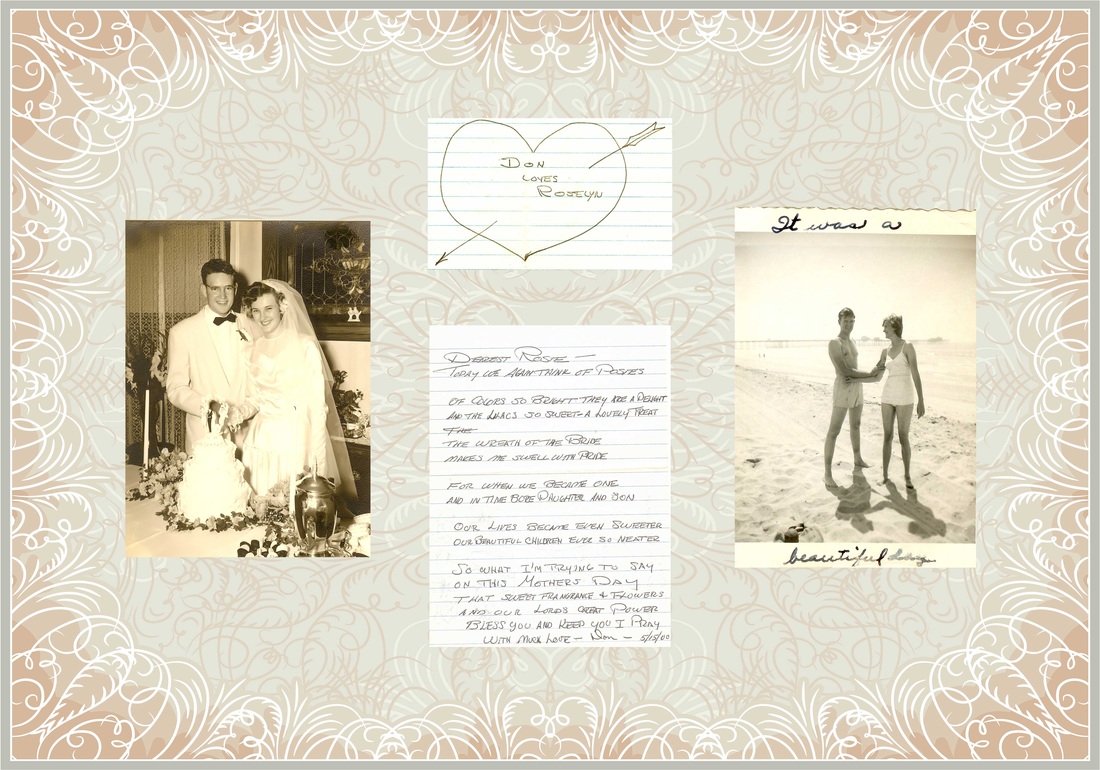 DON
LOVES
ROSELYN
It was a
beautiful day
DEAREST ROSIE —
TODAY WE AGAIN THINK OF POSIES
OF COLORS SO BRIGHT THEY ARE A DELIGHT
AND THE LILACS SO SWEET - A LOVELY TREAT
THE
THE WREATH OF THE BRIDE
MAKES ME SWELL WITH PRIDE
FOR WHEN WE BECAME ONE
AND IN TIME BORE DAUGHTER AND SON
OUR LIVES BECAME EVEN SWEETER
OUR BEAUTIFUL CHILDREN EVER SO NEATER
SO WHAT I'M TRYING TO SAY
ON THIS MOTHERS DAY
THAT SWEET FRANGRANCE & FLOWERS
AND OUR LORDS GREAT POWER
BLESS YOU AND KEEP YOU I PRAY
WITH MUCH LOVE — Don —